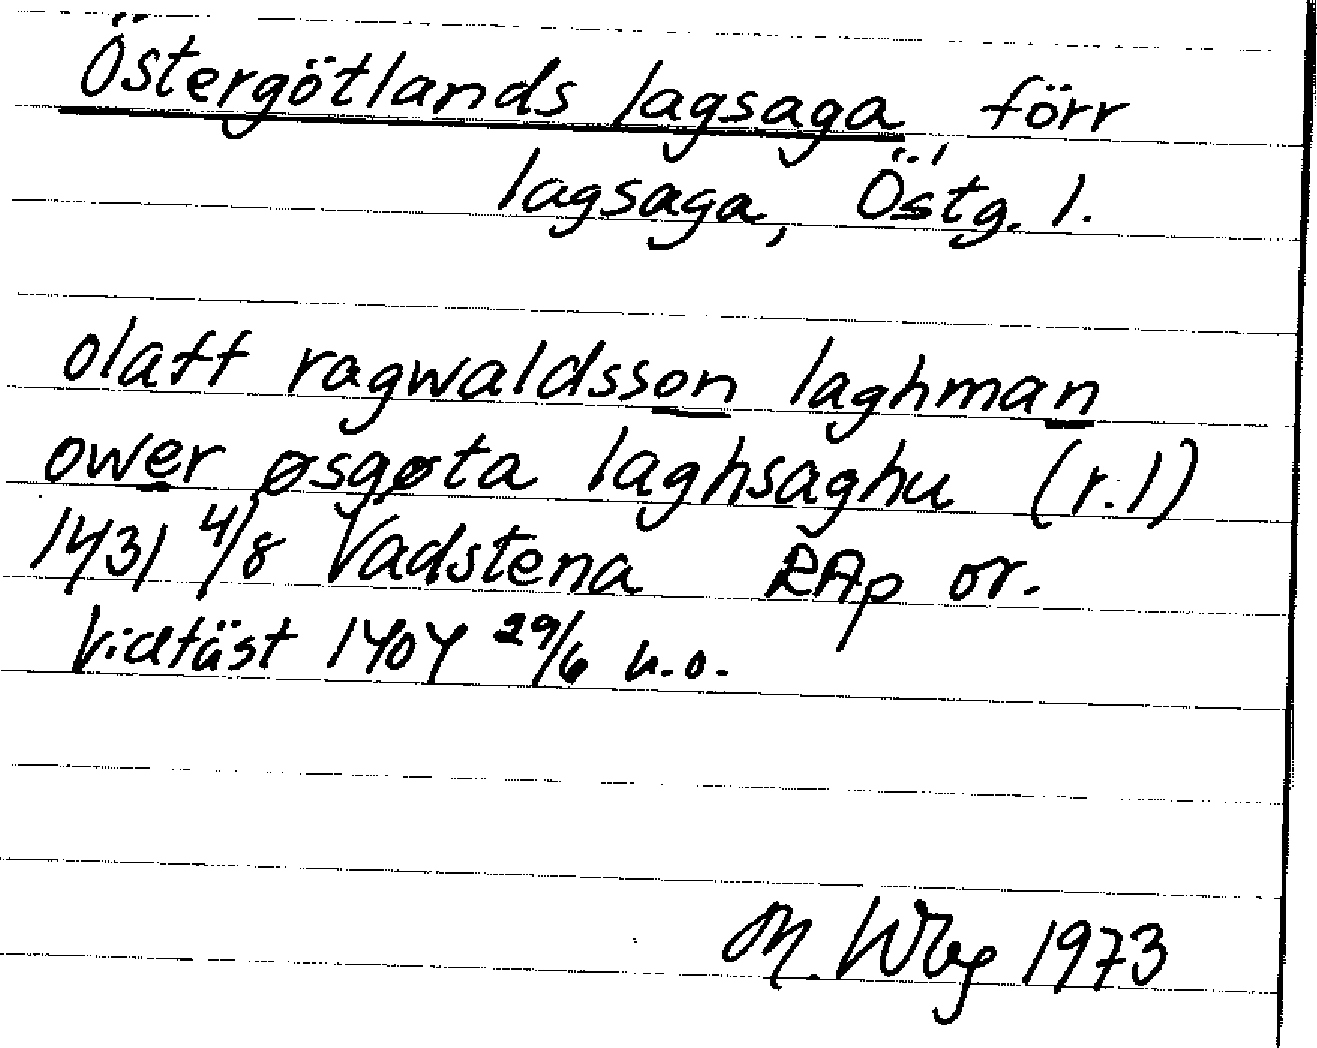 Östergötlands lagsaga förr
lagsaga, Östg. l.
olaff ragwaldsson laghman
ower øsgøta laghsaghu (r.1)
1431 4/8 Vadstena RAp or.
Vidfäst 1404 29/6 u.o.
M. Wbg 1973